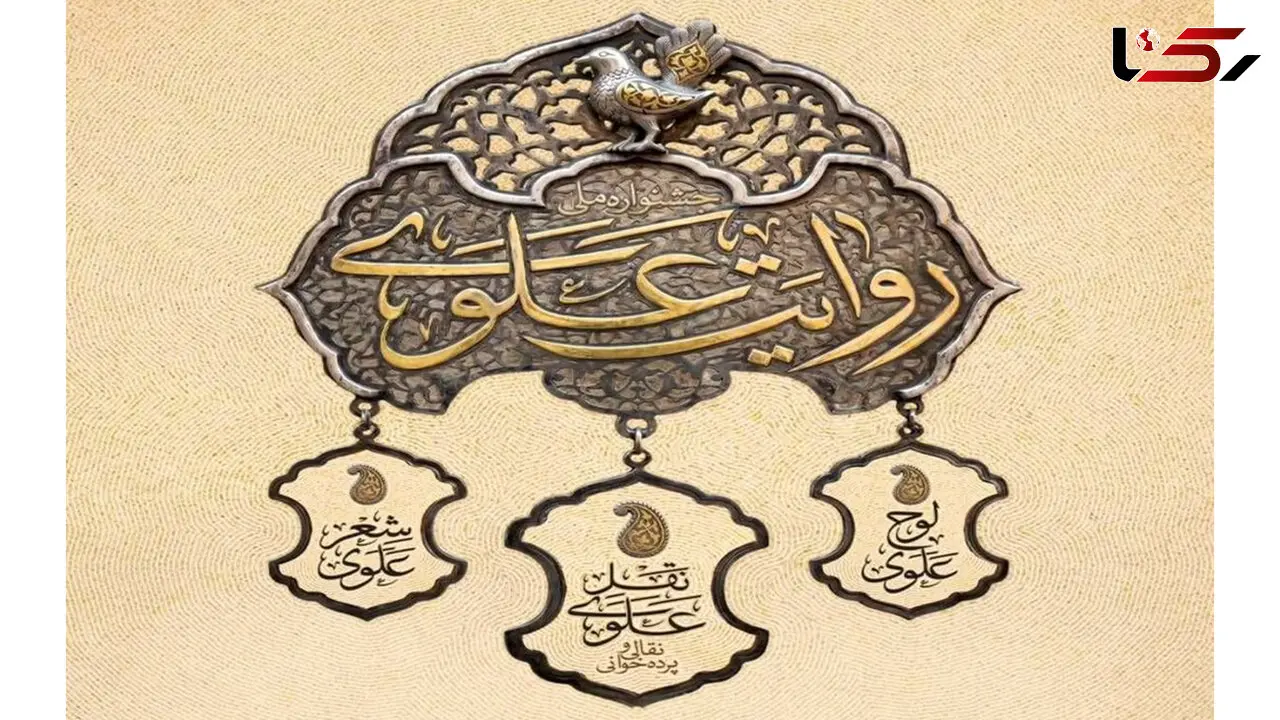 رکنا
جشنواره ملی
روایت علوی
لوح
علوی
نقل
علوی
نقالی و
پرده‌خوانی
شعر
علوی